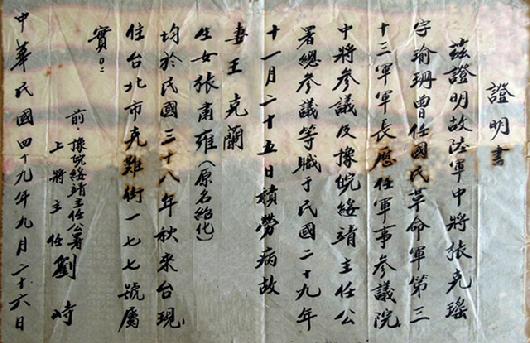 證明書
茲證明故陸軍中將張克瑤
字瑜珊曾任國民革命軍第三
十三軍軍長歷任軍事參議院
中將參議及豫皖綏靖主任公
署總參議等職于民國二十九年
十一月二十五日積勞病故
妻王克蘭
生女張肅雍(原名紹化)
均於民國三十八年秋來台現
住台北市克難街一七七號屬
實
前豫皖綏靖主任公署
上將主任劉峙
中華民國四十九年九月二十六日